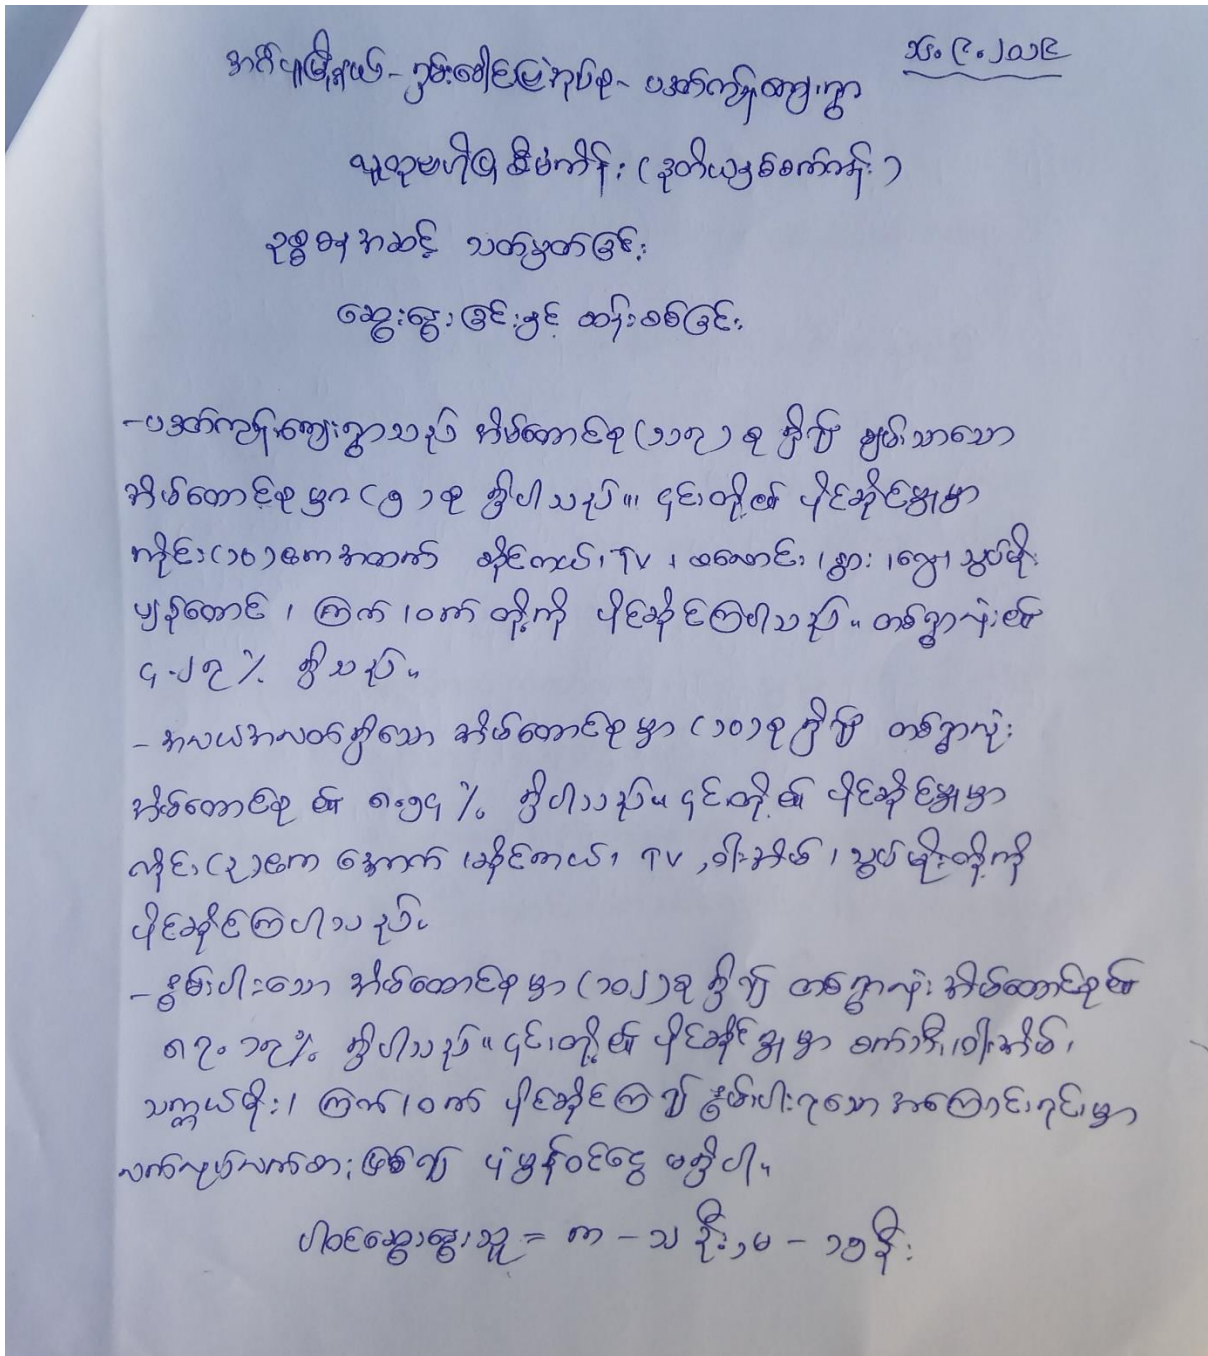 ၁၆.၉.၂၀၁၉
အင်္ဂပူမြို့နယ် - ရှမ်းခေါင်မြဲအုပ်စု - ပအတ်ကျွန်းကျေးရွာ
လူထုဗဟိုပြုစီမံကိန်း (ဒုတိယနှစ်စက်ဝန်း)
ဥစ္စာဓနအဆင့် သတ်မှတ်ခြင်း
ဆွေးနွေးခြင်းနှင့် ဆန်းစစ်ခြင်း
- ပအတ်ကျွန်းကျေးရွာသည် အိမ်ထောင်စု (၁၁၇) စု ရှိ၍ ချမ်းသာသော
အိမ်ထောင်စုမှာ (၅) စု ရှိပါသည်။ ၎င်းတို့၏ ပိုင်ဆိုင်မှုမှာ
ကိုင်း (၁၀) ဧကအထက် ဆိုင်ကယ်၊ TV ၊ ထမောင်း၊ နွား၊ လှေ၊ သွပ်မိုး
ပျဉ်ထောင်၊ ကြက်၊ ဝက် တို့ကို ပိုင်ဆိုင်ကြပါသည်။ တစ်ရွာလုံး၏
၄.၂၇ % ရှိသည်။
- အလယ်အလတ်ရှိသော အိမ်ထောင်စုမှာ (၁၀) စု ရှိ၍ တစ်ရွာလုံး
အိမ်ထောင်စု ၏ ၈.၅၄ % ရှိပါသည်။ ၎င်းတို့၏ ပိုင်ဆိုင်မှုမှာ
ကိုင်း (၃) ဧက အောက် ၊ ဆိုင်ကယ်၊ TV , ဝါးအိမ်၊ သွပ်မိုးတို့ကို
ပိုင်ဆိုင်ကြပါသည်။
- နွမ်းပါးသော အိမ်ထောင်စုမှာ (၁၀၂) စု ရှိ၍ တစ်ရွာလုံး အိမ်ထောင်စု၏
၈၇.၁၇ % ရှိပါသည်။ ၎င်းတို့၏ ပိုင်ဆိုင်မှုမှာ စက်ဘီး၊ ဝါးအိမ်၊
သက္ကယ်မိုး၊ ကြက်၊ ဝက် ပိုင်ဆိုင်ကြ၍ နွမ်းပါးရသော အကြောင်းရင်းမှာ
လက်လုပ်လက်စားဖြစ်၍ ပုံမှန်ဝင်ငွေ မရှိပါ။
ပါဝင်ဆွေးနွေးသူ = ကာ - ၁ ဦး , မ - ၁၅ ဦး